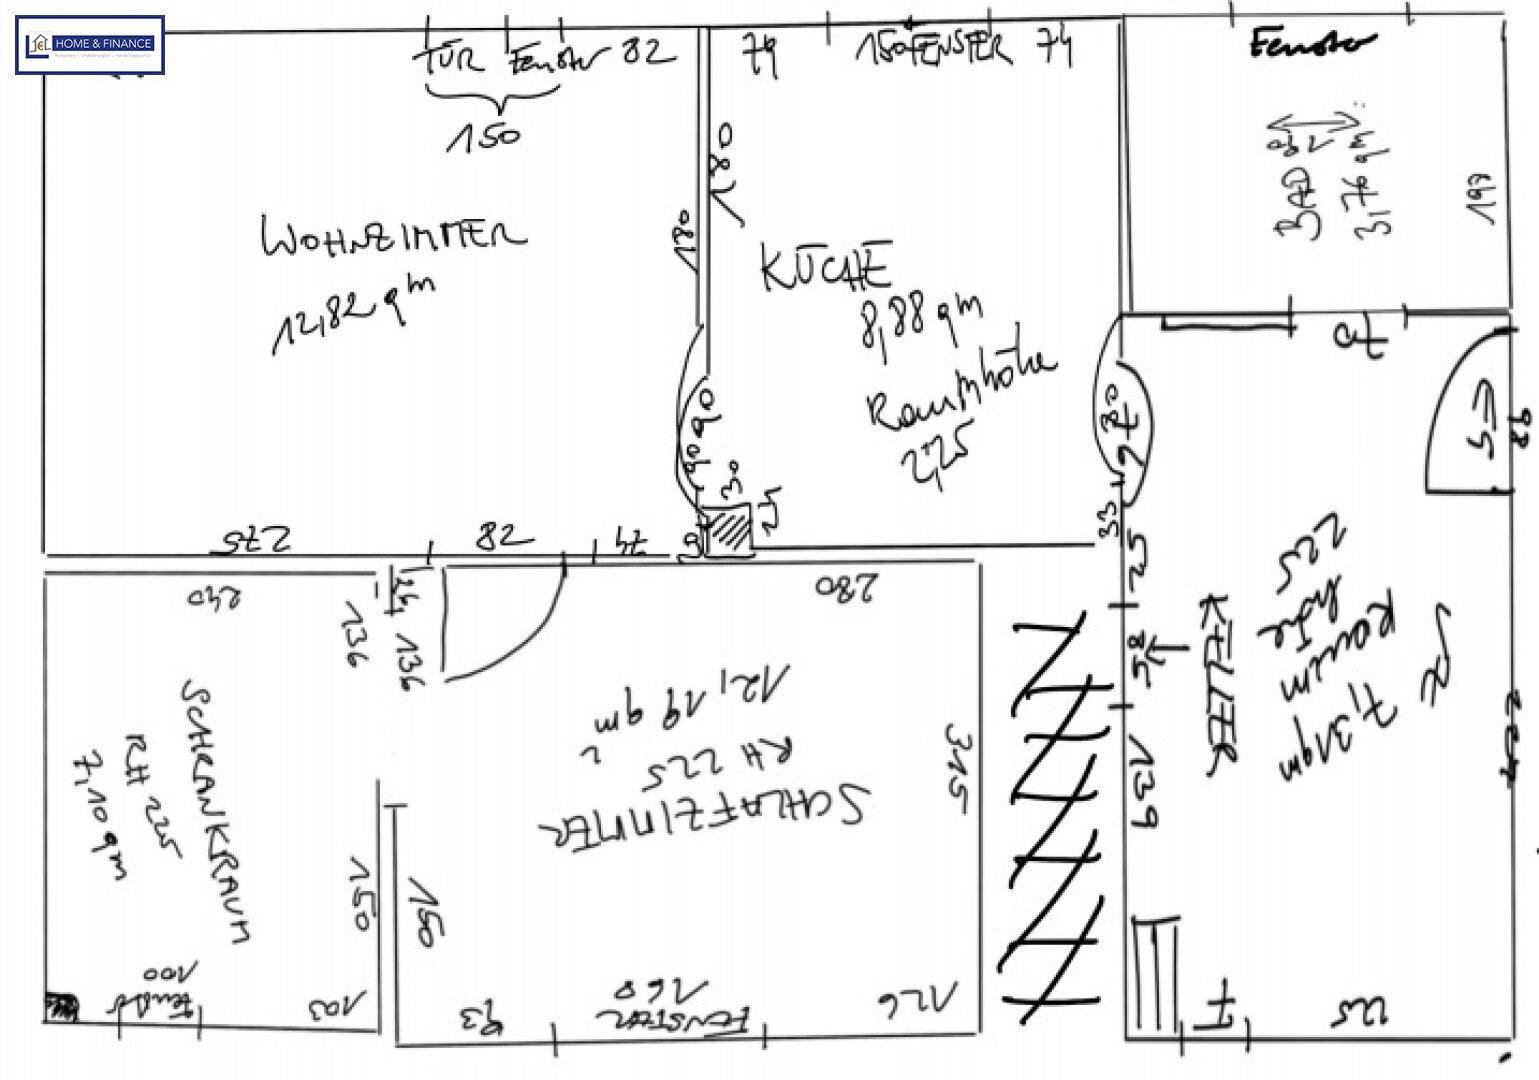 HOME & FINANCE
TÜR Fenster 82
150
79
150 FENSTER 74
Fenster
180
180
WOHNZIMMER
12,82 qm
KÜCHE
8,88 qm
Raumhöhe
2,25
BAD
3,76 qm
199
90
90
30
24
80
76
33
25
58
139
88
275
82
74
240
136
136
280
SCHRANKRAUM
RH 225
7,10 qm
SCHLAFZIMMER
RH 225
12,19 qm
315
150
150
KELLER
7,31 qm
Raum
höhe
225
100
Fenster
103
93
FENSTER
160
126
F
225